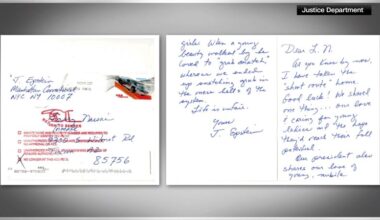 Justice Department
J. Epstein
Manhattan Correctional
NYC NY 10007
Nassar
9300 S. Wilmot Rd
AZ
85756
girls. When a young
beauty walked by he
loved to "grab snatch,"
whereas we ended
up snatching grub in
the mess halls of the
system.
Life is unfair.
Yours
J. Epstein
Dear L.N.
As you know by now,
I have taken the
"short route" home.
Good luck! We shared
one thing... our love
& caring for young
ladies and the hope
they'd reach their full
potential.
Our president also
shares our love of
young, nubile